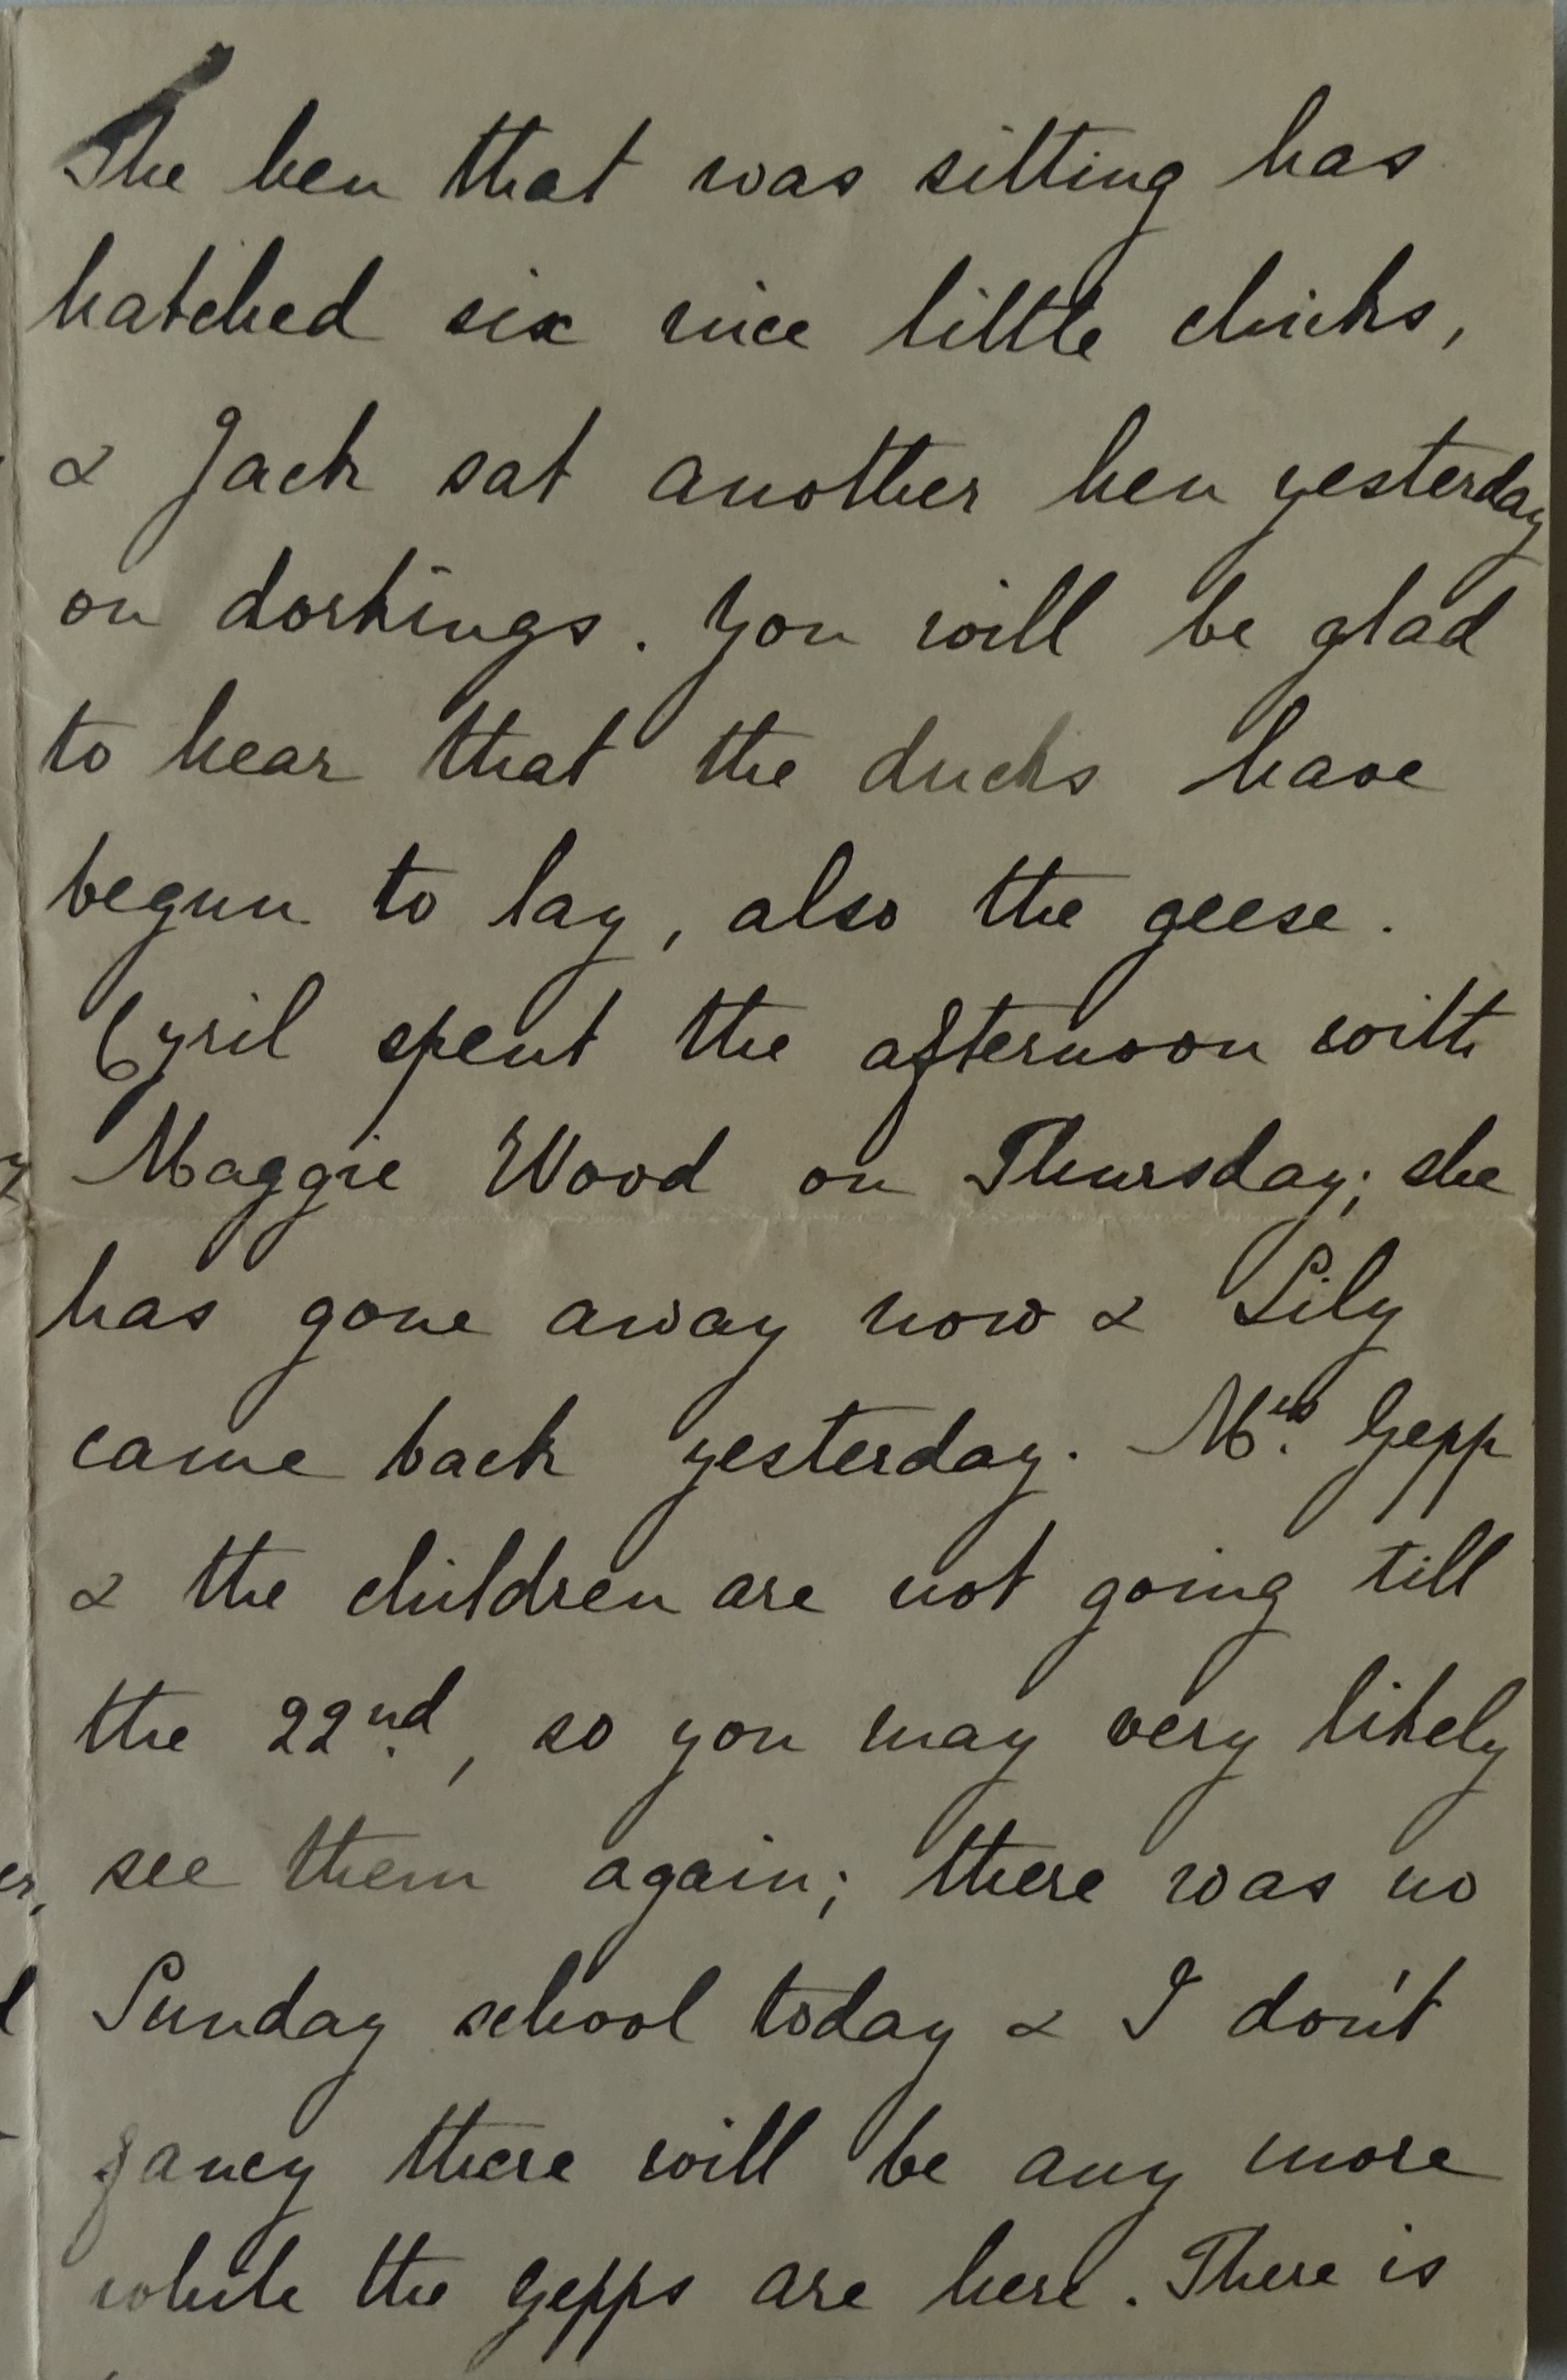 The hen that was sitting has
hatched six nice little chicks,
& Jack sat another hen yesterday
on dorkings. You will be glad
to hear that the ducks have
begun to lay, also the geese.
Cyril spent the afternoon with
Maggie Wood on Thursday; she
has gone away now & Lily
came back yesterday. Mrs. Gepp
& the children are not going till
the 22nd, so you may very likely
see them again; there was no
Sunday school today & I don't
fancy there will be any more
while the Gepps are here. There is